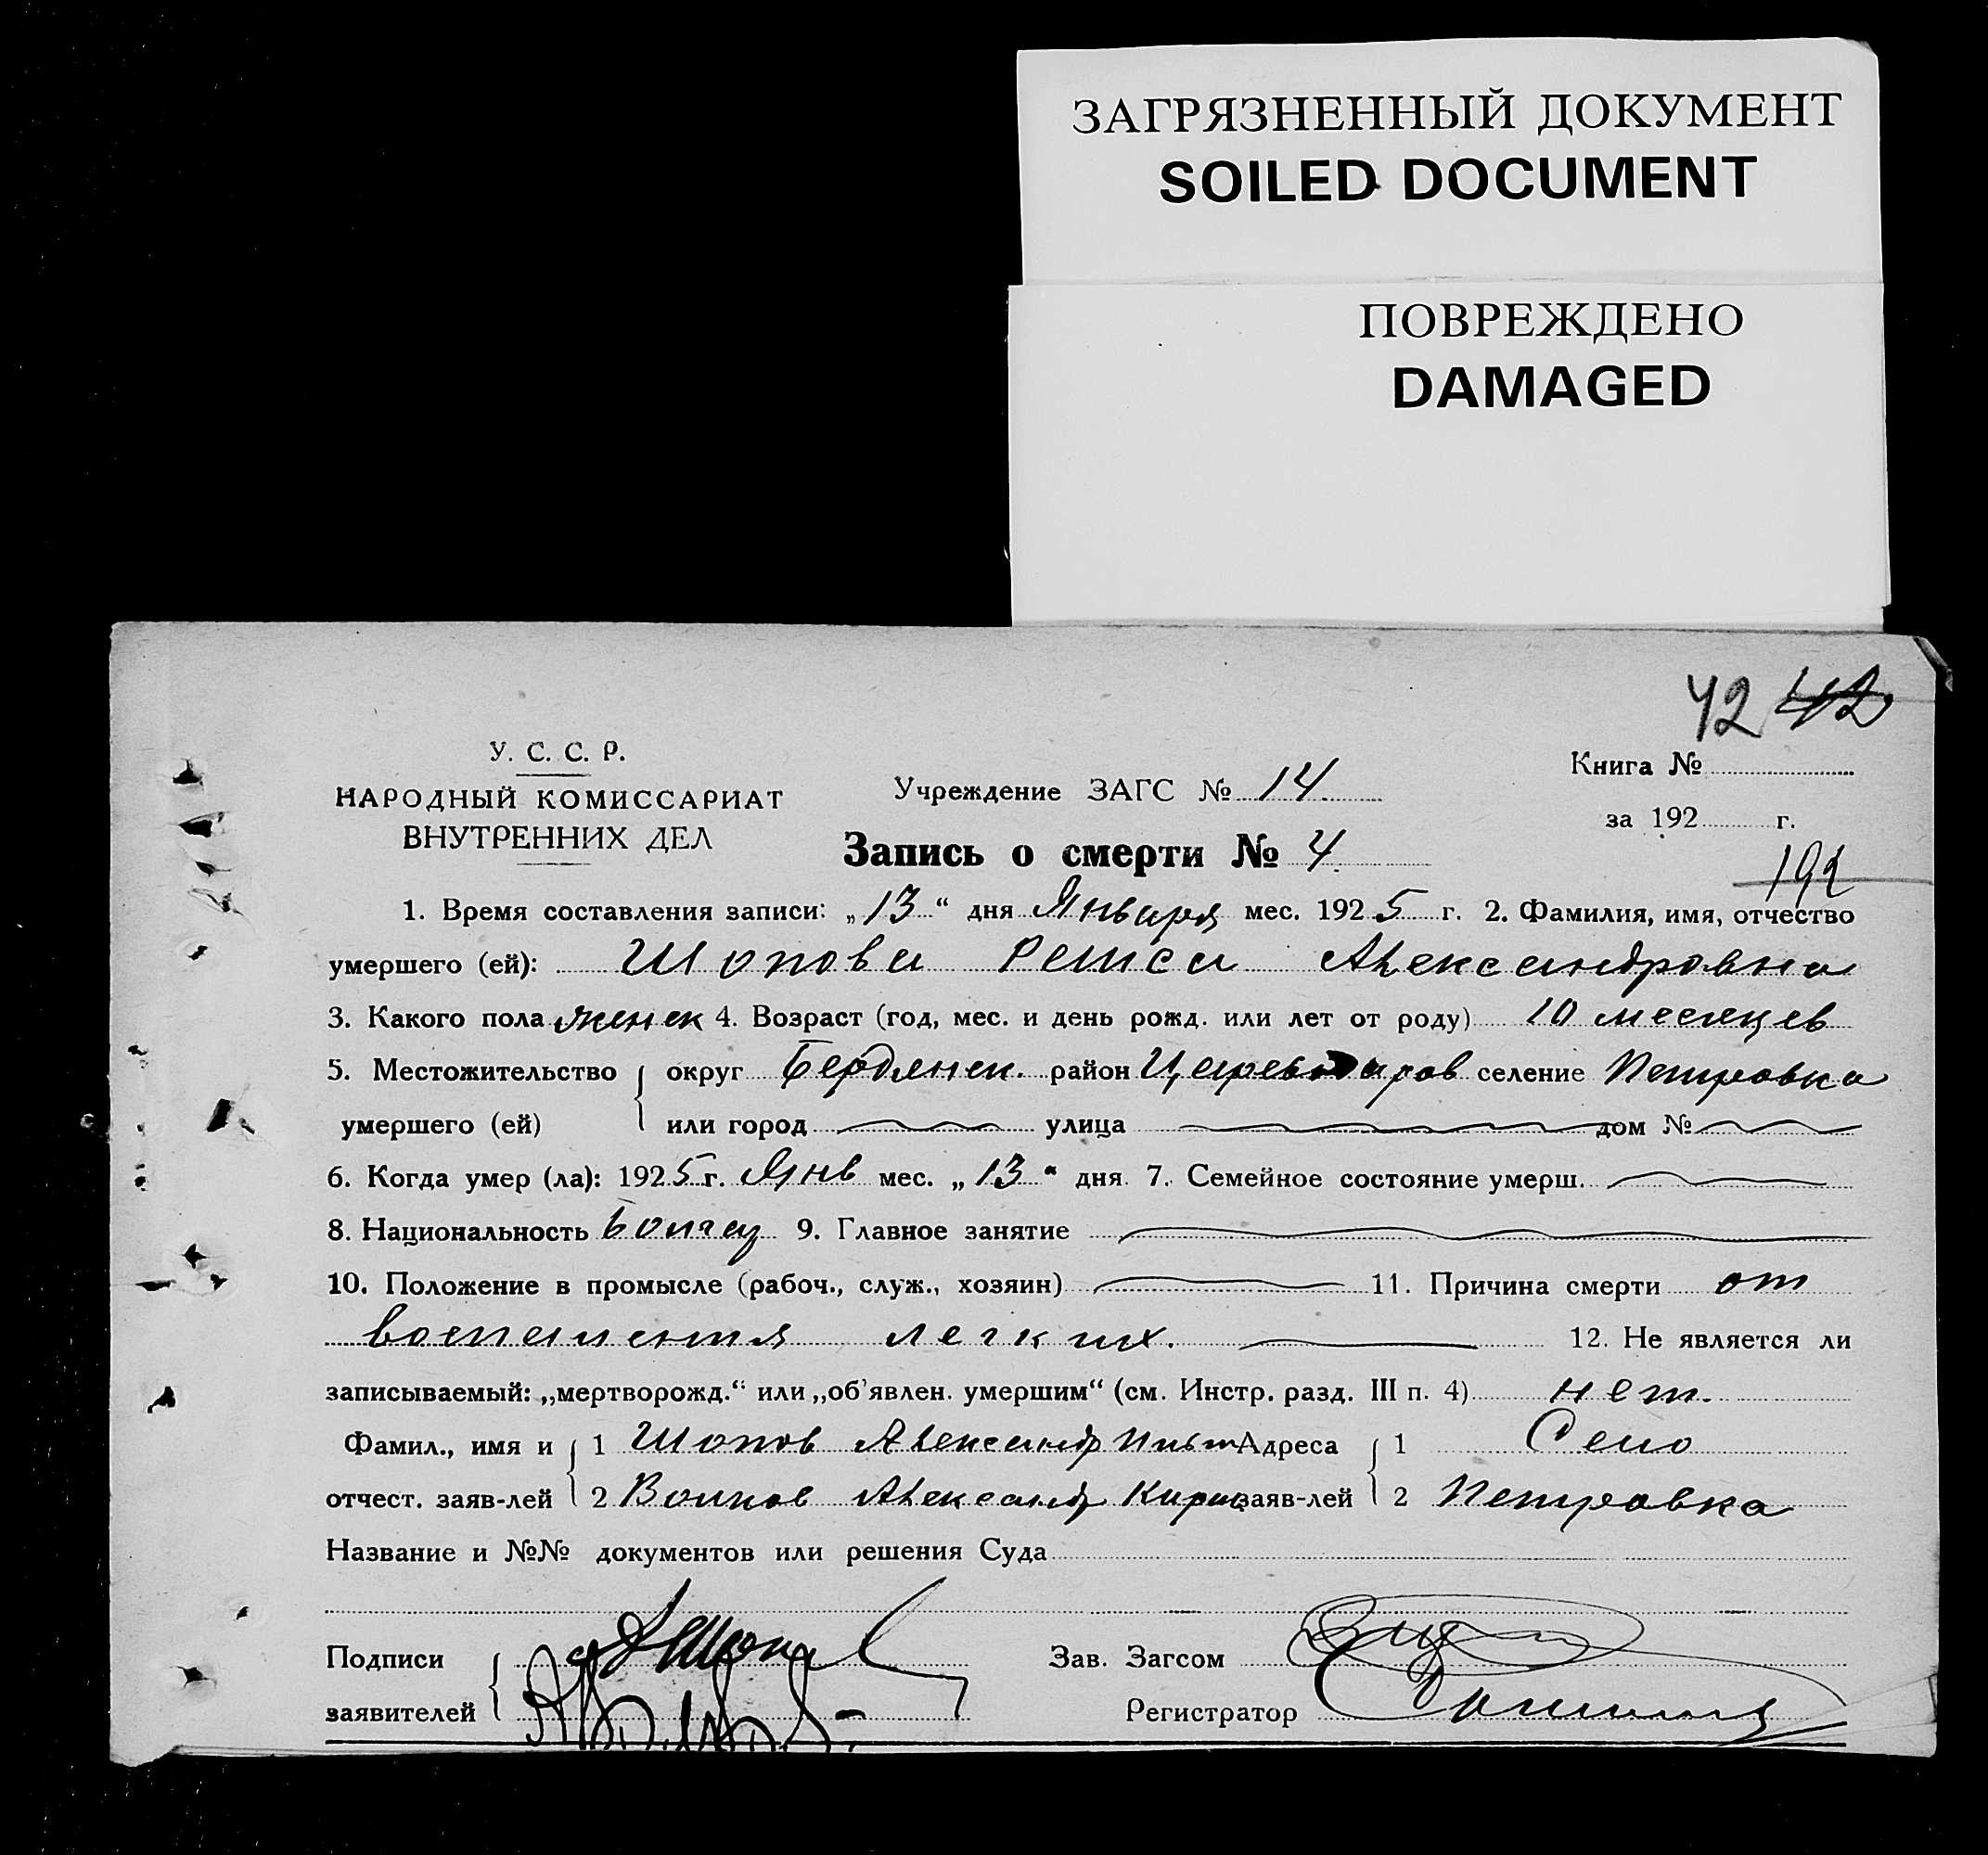 ЗАГРЯЗНЕННЫЙ ДОКУМЕНТ
SOILED DOCUMENT
ПОВРЕЖДЕНО
DAMAGED
42 42
У. С. С. Р.
НАРОДНЫЙ КОМИССАРИАТ
ВНУТРЕННИХ ДЕЛ
Учреждение ЗАГС № 14
Запись о смерти № 4
Книга №
за 192 г.
192
1. Время составления записи: „13“ дня Января мес. 1925 г. 2. Фамилия, имя, отчество
умершего (ей): Шопова Раиса Александровна
3. Какого пола женск 4. Возраст (год, мес. и день рожд. или лет от роду) 10 месяцев
5. Местожительство округ Бердянск. район селение Петровка
умершего (ей) или город улица дом №
6. Когда умер (ла): 1925 г. Янв мес. „13“ дня. 7. Семейное состояние умерш.
8. Национальность Болгар 9. Главное занятие
10. Положение в промысле (рабоч., служ., хозяин) 11. Причина смерти от
воспаления легких. 12. Не является ли
записываемый: „мертворожд.“ или „об’явлен. умершим“ (см. Инстр. разд. III п. 4) нет.
Фамил., имя и 1 Шопов Александр Адреса 1 Село
отчест. заяв-лей 2 Волков Александр заяв-лей 2 Петровка
Название и №№ документов или решения Суда
Подписи Зав. Загсом
заявителей Регистратор